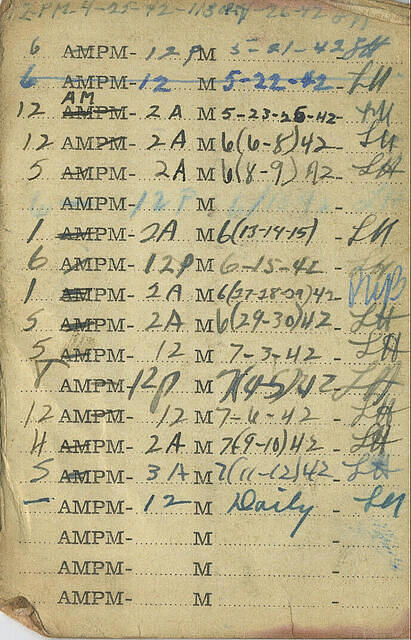 12 PM 4-25-42 - 4-26-42
6 AMPM- 12 PM 5-21-42 LH
6 AMPM- 12 M 5-22-42 - LH
AM
12 AMPM- 2 A M 5-23-25-42- LH
12 AMPM- 2 A M 6(6-8)42 LH
5 AMPM- 2A M 6(8-9)42- LH
AMPM- 12 P M -
1 AMPM- 2A M 6(13-14-15) - LH
6 AMPM- 12P M 6-15-42 -
1 AMPM- 2 A M 6(27-28-29)42
5 AMPM- 2A M 6(29-30)42- LH
5 AMPM- 12 M 7-3-42 - LH
AMPM- 12P M 7(4-5)42 LH
12 AMPM- 12 M 7-6-42 - LH
4 AMPM- 2A M 7(9-10)42 - LH
5 AMPM- 3 A M 7(11-12)42- LH
- AMPM- 12 M Daily - LH
AMPM- M -
AMPM- M -
AMPM- M -